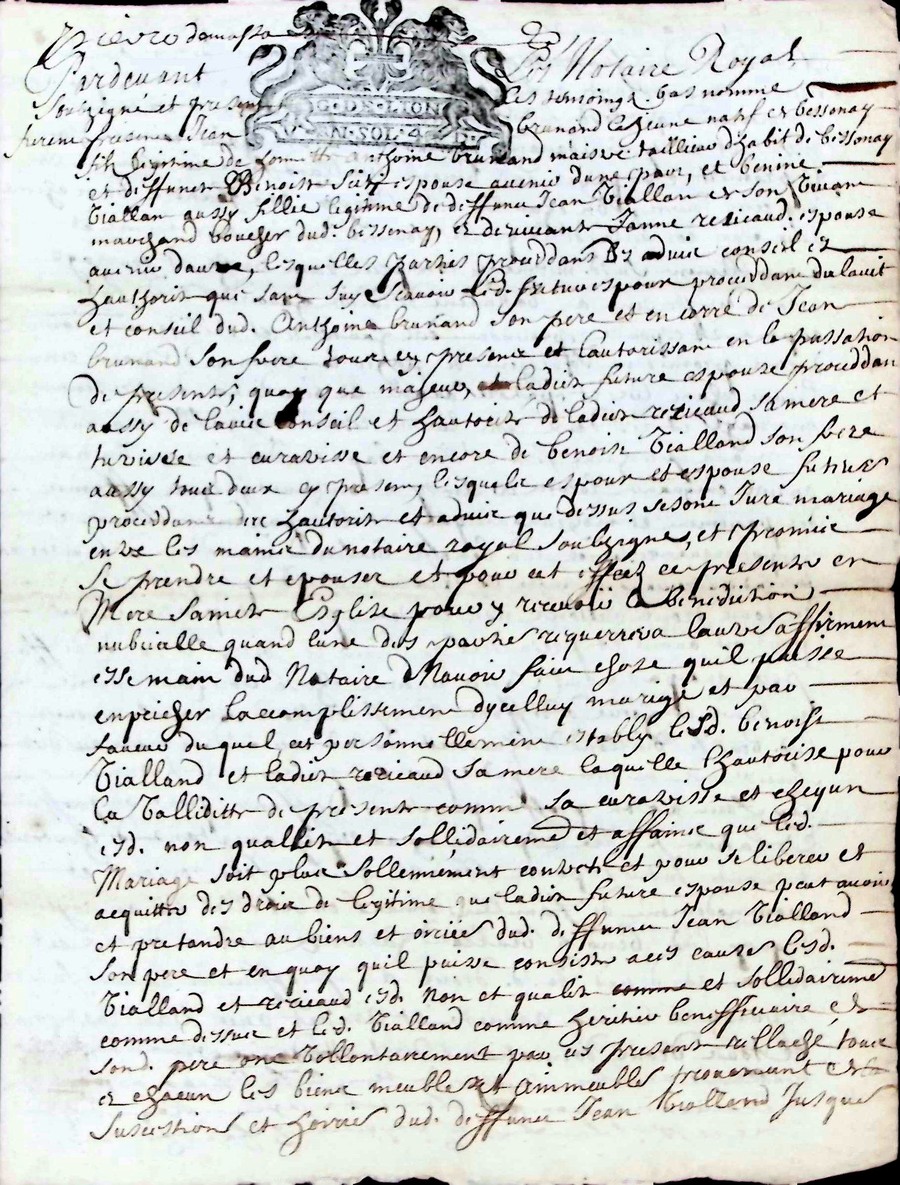 Pardevant Les Notaire Royal
Soubsigné et present Les temoingt bas nomme
furent presens Jean brunand le Jeune natif de bessenay
fils legitime de anthoine brunand maistre tailleur dhabit de bessenay
G·DE·LION
SOL·4
et deffuncte Benoiste espoux avenir dune part, et benine
Tiallan aussy fillie legitime de deffunct Jean Tiallan en son vivant
marchand boucher dud. bessenay, et de vivante Janne espouse
avenir dautre, lesquelles parties proceddans de advis conseil et
hauthorité que sans savoir led. futur espoux proceddant du lavit
et conseil dud. Anthoine brunand son pere et encorre de Jean
brunand son frere tous ey presens et lautorissant en la passation
de presents, quoy que majeur, et ladite future espouse proceddan
aussy de lavis conseil et hautorité de ladite sa mere et
tutrisse et curatrisse et encore de benoist Tialland son frere
aussy tous deux ey present, lesquels espoux et espouse futurs
proceddans de hautorité et advis que dessus se sont Juré mariage
entre les mains du notaire royal soubsigne, et promis
se prendre et epouser et pour cet effect ce presenter en
Mere Saincte Esglize pour y recevoir la benediction
nubtialle quand lune des parties requerrera lautre affirment
es main dud Notaire Navoir faict chose quil puisse
empecher laccomplissement dycelluy mariage et par
faveur duquel est personnellement estably led. benoist
Tialland et ladite sa mere laquelle lhautorise pour
la Vallidité de presents comme sa curatrisse et cheqún
esd. non quallité et sollidairement et affaince que led.
Mariage soit plus sollennement contracté et pour se liberer et
acquitter des droit de legitime que ladite future espouse peut avoir
et pretandre au biens et dud. deffunct Jean Tialland
son pere et en quoy quil puisse consister a ces causes lesd.
Tialland et esd. Non et qualité comme et sollidairement
comme dessus et led. Tialland comme heritier beneffissiaire
sond. pere ont Vollontairement par ces present rellaché tous
et chacun les biens meubles et Aimmeubles provenant
sucestions et dud. deffunct Jean Tialland Jusques